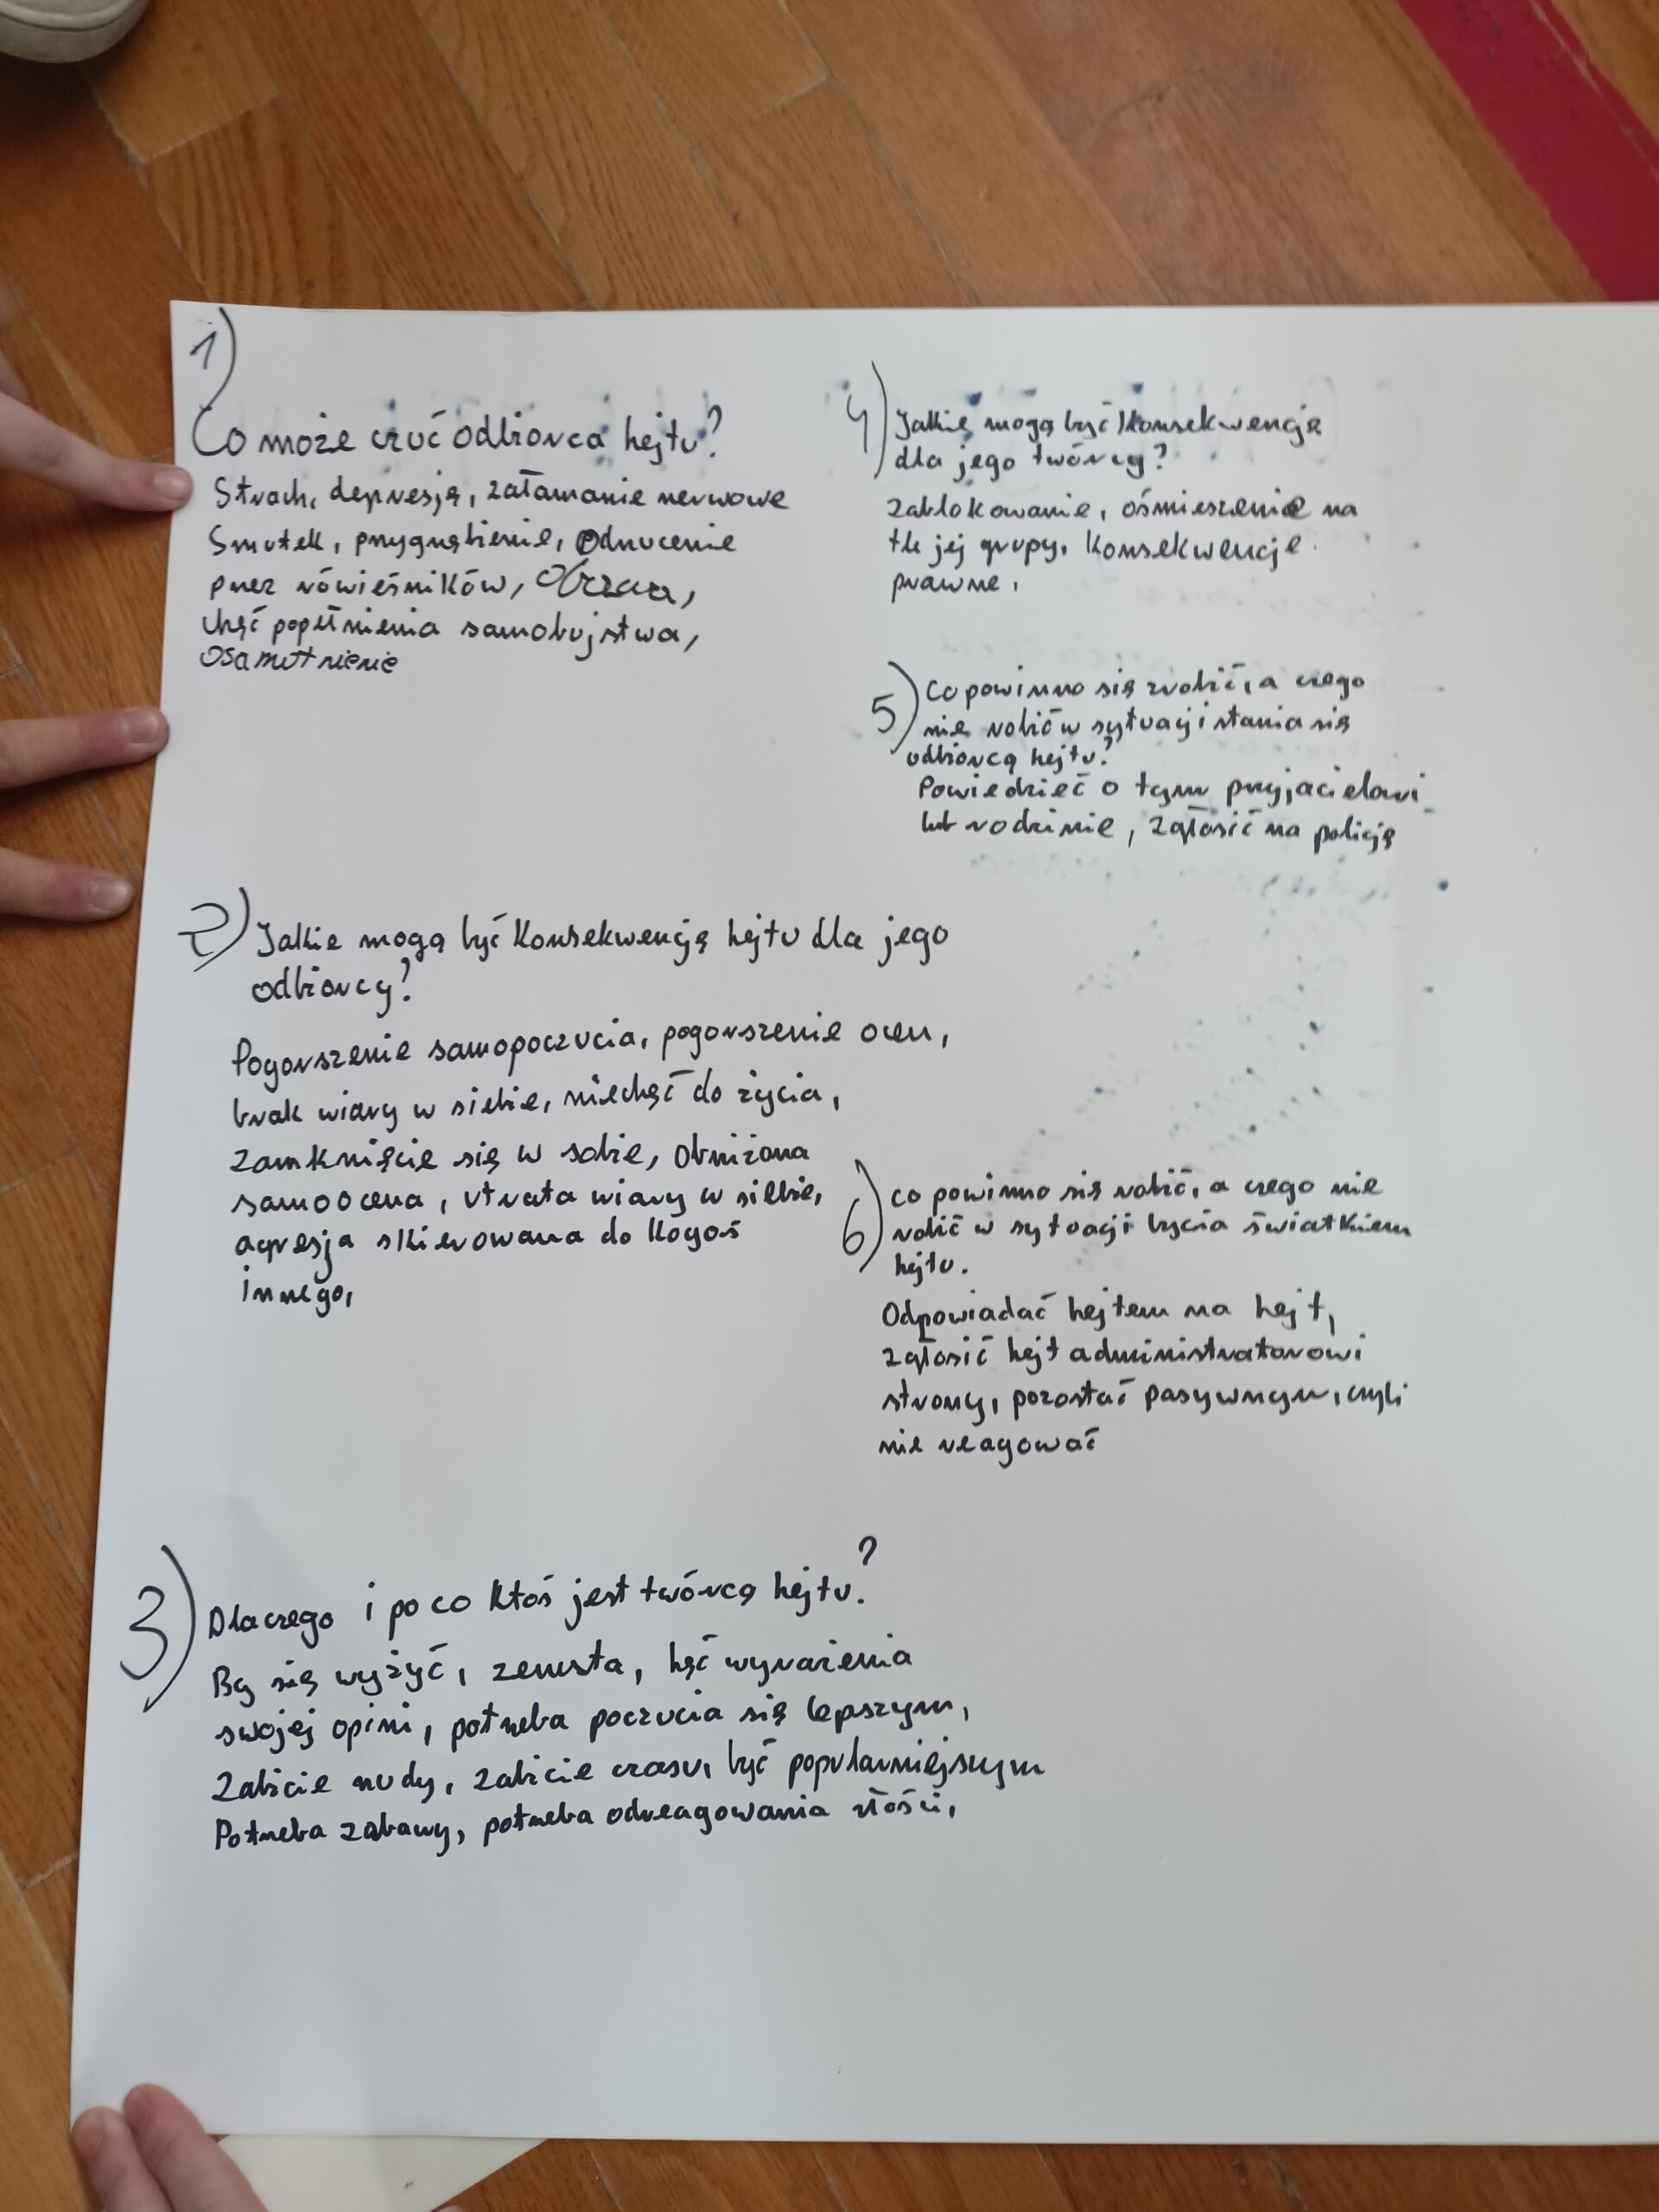 1)
Co może czuć odbiorca hejtu?
Strach, depresję, załamanie nerwowe
Smutek, przygnębienie, Odrzucenie
przez rówieśników, Obraza,
chęć popełnienia samobujstwa,
osamotnienie
2) Jakie mogą być konsekwencję hejtu dla jego
odbiorcy?
Pogorszenie samopoczucia, pogorszenie ocen,
brak wiary w siebie, niechęć do życia,
zamknięcie się w sobie, obniżona
samoocena, utrata wiary w siebie,
agresja skierowana do kogoś
innego,
3) Dlaczego i po co ktoś jest twórcą hejtu?
By się wyżyć, zemsta, hęć wyrażenia
swojej opini, potrzeba poczucia się lepszym,
Zabicie nudy, zabicie czasu, być popularniejszym
Potrzeba zabawy, potrzeba odreagowania złości,
4) Jakie mogą być konsekwencję
dla jego twórcy?
zablokowanie, ośmieszenie na
tle jej grupy, konsekwencje
prawne,
5) Co powinno się zrobić, a czego
nie robić w sytuacji stania się
odbiorcą hejtu?
Powiedzieć o tym przyjacielowi
lub rodzinie, zgłosić na policję
6) co powinno się robić, a czego nie
robić w sytuacji bycia światkiem
hejtu.
Odpowiadać hejtem na hejt,
zgłosić hejt administratorowi
strony, pozostać pasywnym, czyli
nie reagować